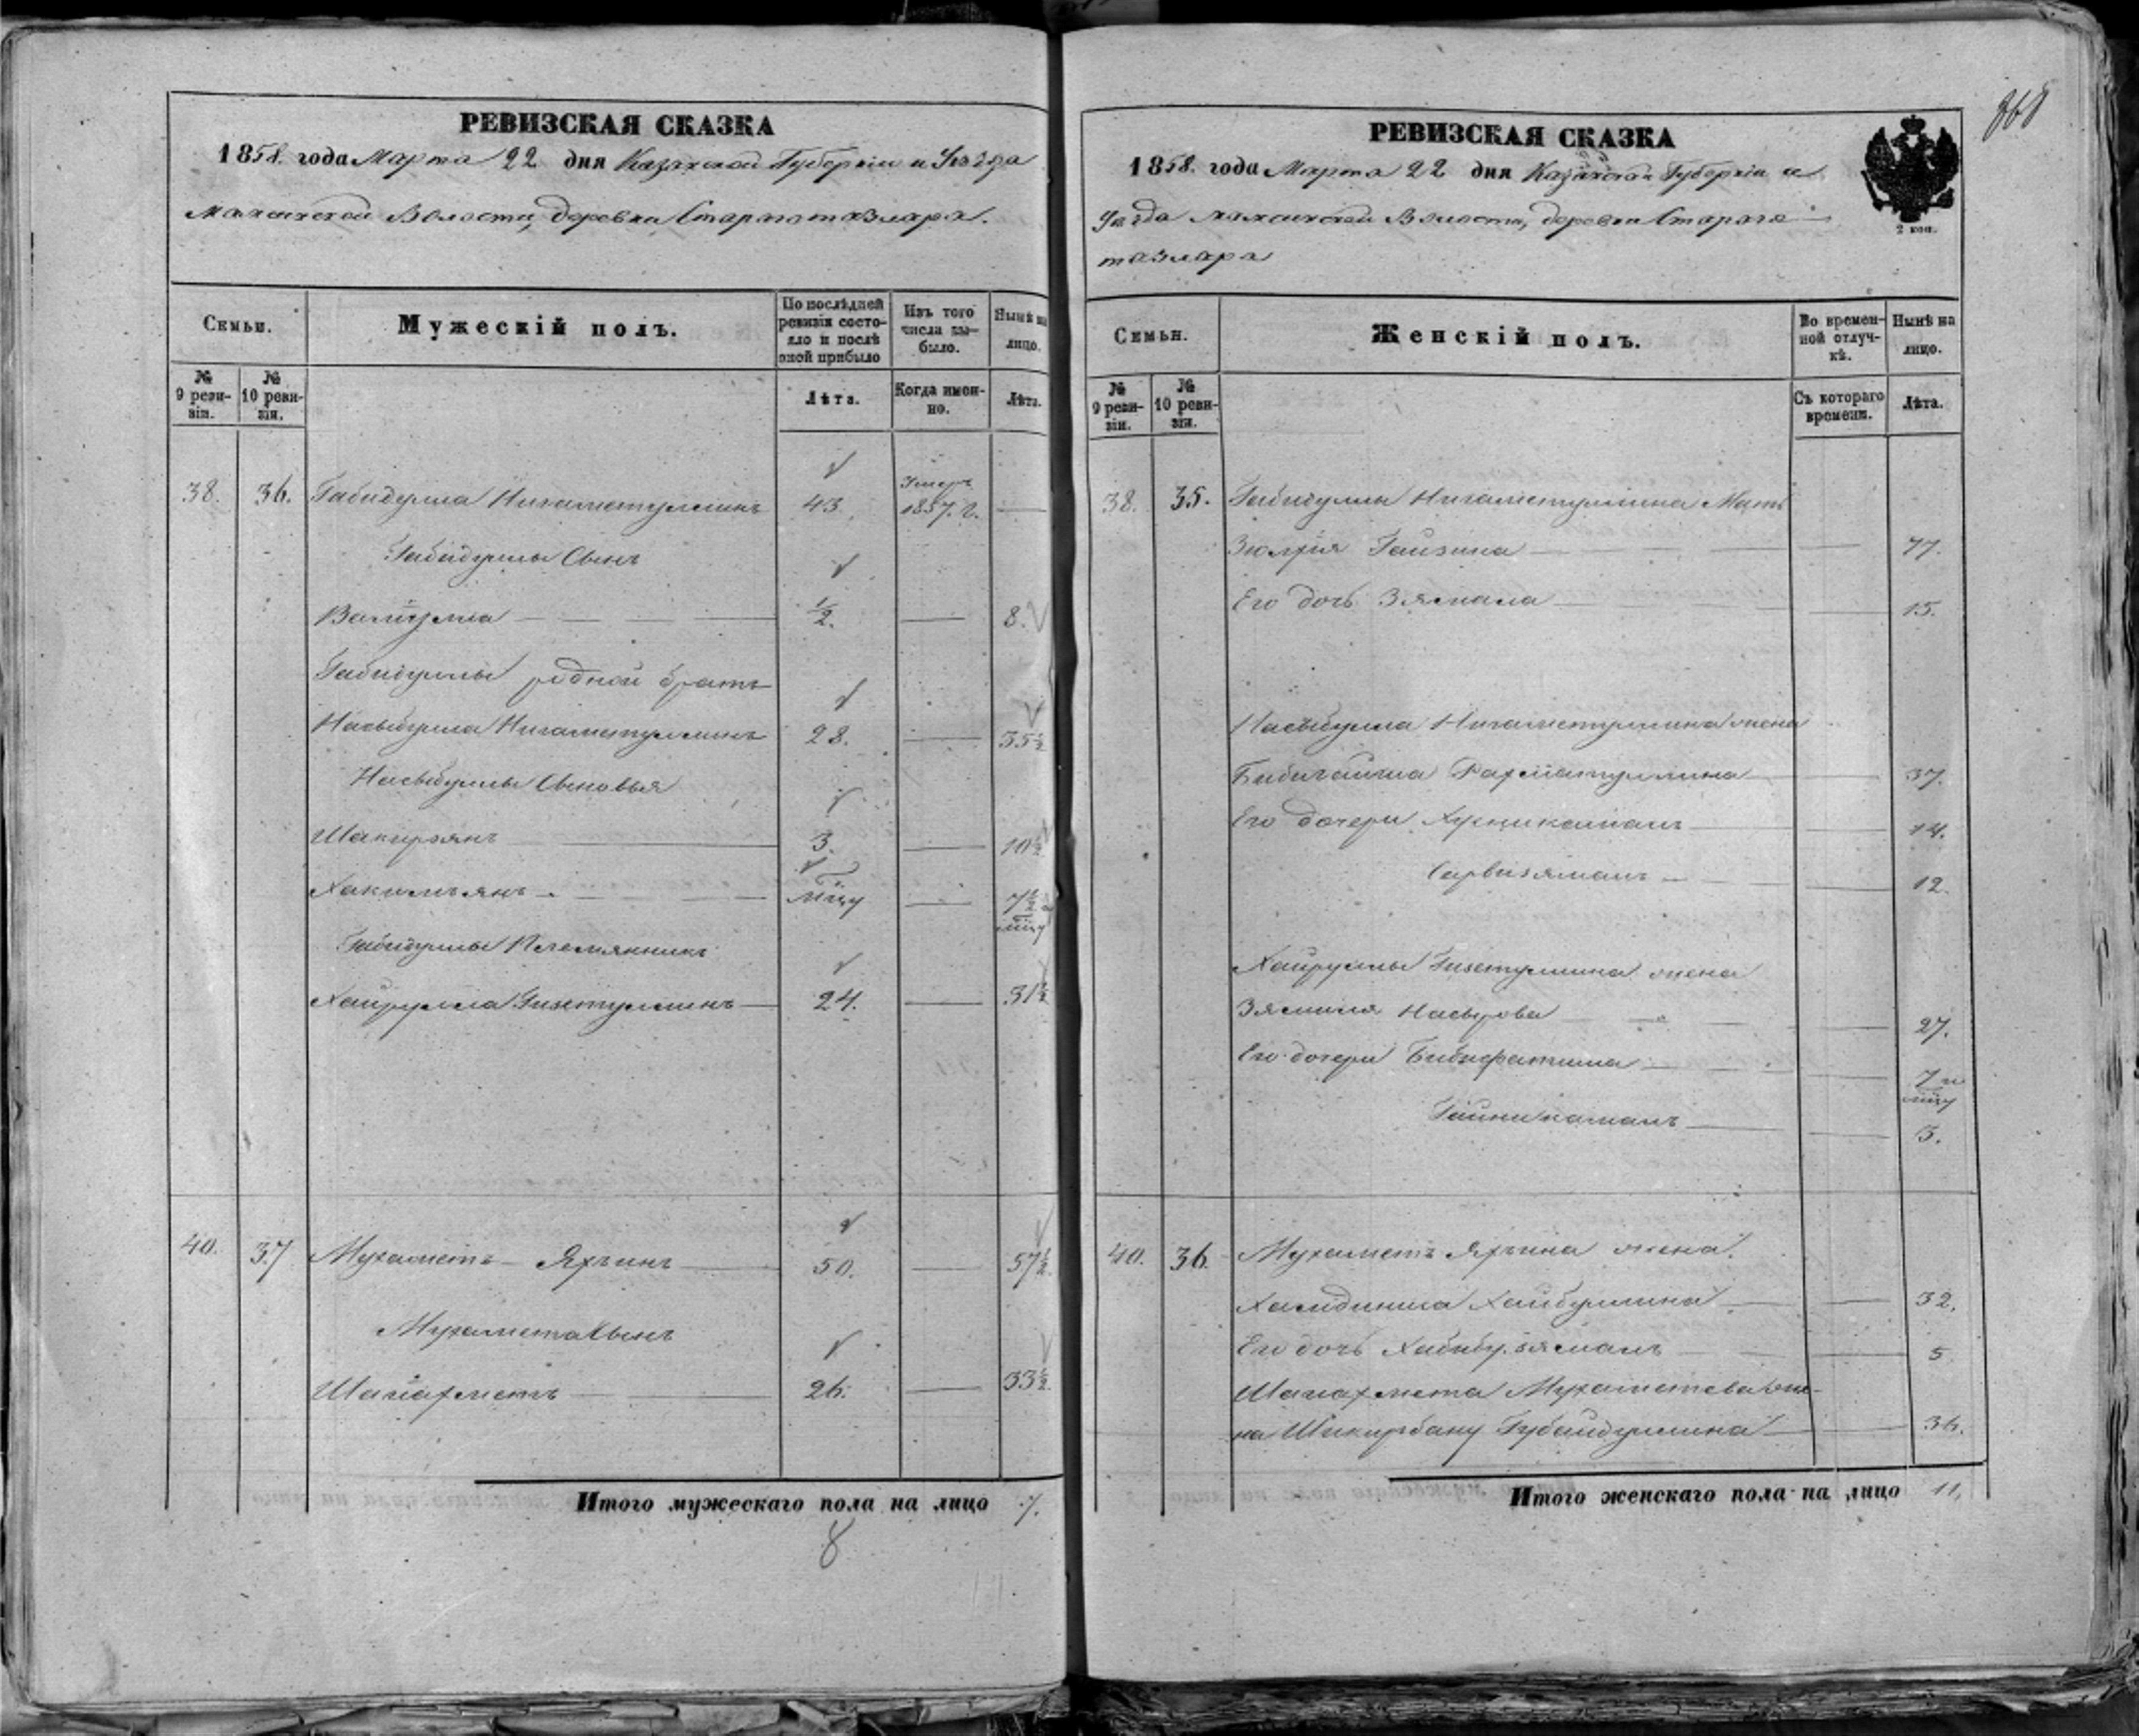 РЕВИЗСКАЯ СКАЗКА
1858. года Марта 22 дня Казанской Губерніи и Уѣзда
Волости, деревни Стараго тазлара.
Семьи.
Мужескій полъ.
По послѣдней ревизіи состояло и послѣ оной прибыло
Изъ того числа выбыло.
Нынѣ на лицо.
№ 9 ревизіи.
№ 10 ревизіи.
Лѣта.
Когда именно.
Лѣта.
38. 36. Габидулла Нигаметуллинъ 43. Умеръ 1857. г. —
Габидуллы Сынъ
Валиулла ½. — 8.
Габидуллы родной братъ
Насыбулла Нигаметуллинъ 28. — 35½
Насыбуллы Сыновья
Шакирзянъ 3. — 10½
Хакимъянъ мцу — 7½ и мцу
Габидуллы Племянникъ
Хайрулла Гизетуллинъ 24. — 31½
40. 37 Мухаметъ Яхъинъ 50. — 57½.
Мухамета Сынъ
Шагіахметъ 26. — 33½.
Итого мужескаго пола на лицо 7.
8
РЕВИЗСКАЯ СКАЗКА
1858. года Марта 22 дня Казанской Губерніи и
Уѣзда Волости, деревни Стараго
тазлара
2 коп.
Семьи.
Женскій полъ.
Во временной отлучкѣ.
Нынѣ на лицо.
№ 9 ревизіи.
№ 10 ревизіи.
Съ котораго времени.
Лѣта.
38. 35. Габидуллы Нигаметуллина Мать
Зюлфія Гаизина — 77.
Его дочь Зямала — 15.
Насыбулла Нигаметуллина жена
Рахматуллина — 37.
Его дочери — 14.
Сарвизямалъ — 12.
Хайруллы Гизетуллина жена
Зямиля Насырова — 27.
Его дочери Бибифатима — 7 и мцу
Гайникамалъ — 3.
40. 36. Мухаметъ Яхъина жена.
Хаибуллина — 32.
Его дочь Хабибузямалъ — 5
Шагіахмета Мухаметева же-
на Шикирбану Губайдуллина — 36.
Итого женскаго пола на лицо 11,